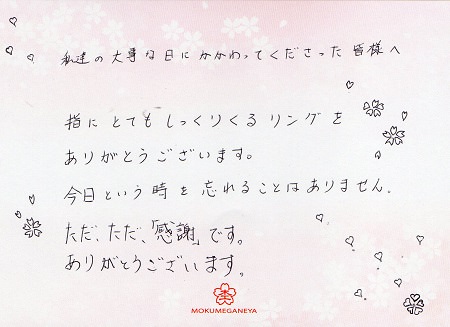 私達の大事な日にかかわってくださった皆様へ
指にとてもしっくりくるリングを
ありがとうございます。
今日という時を忘れることはありません。
ただ、ただ、「感謝」です。
ありがとうございます。
MOKUMEGANEYA